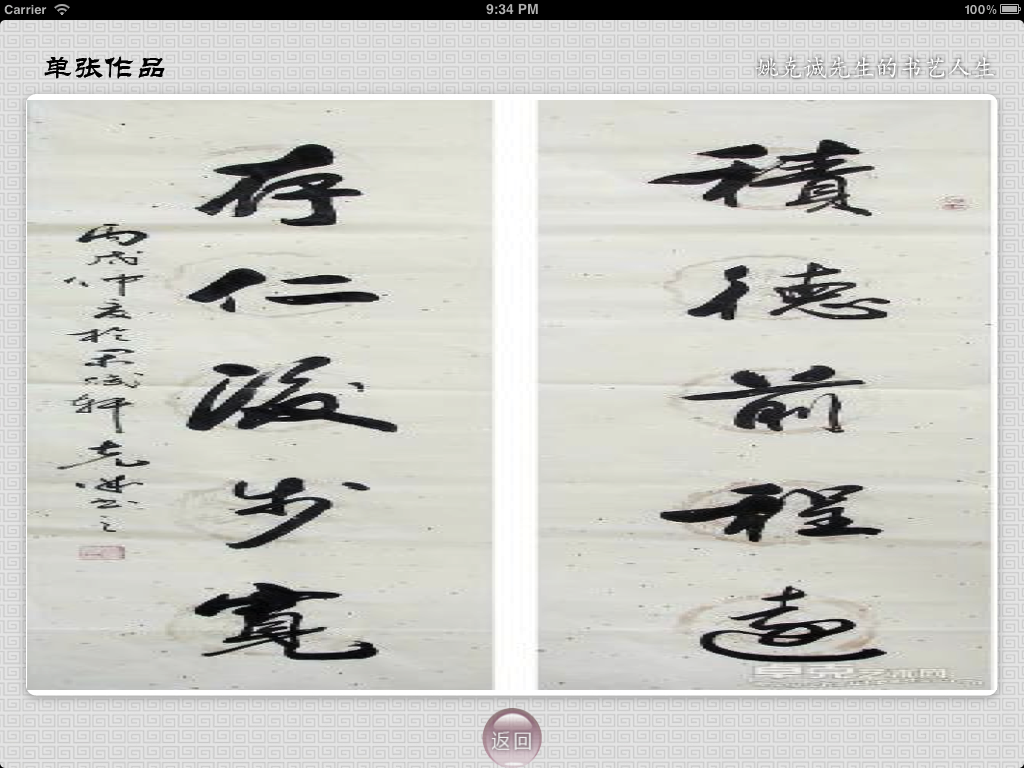 Carrier 9:34 PM 100%
单张作品
姚克诚先生的书艺人生
積德前程遠
存仁後步寬
丙戌仲
返回